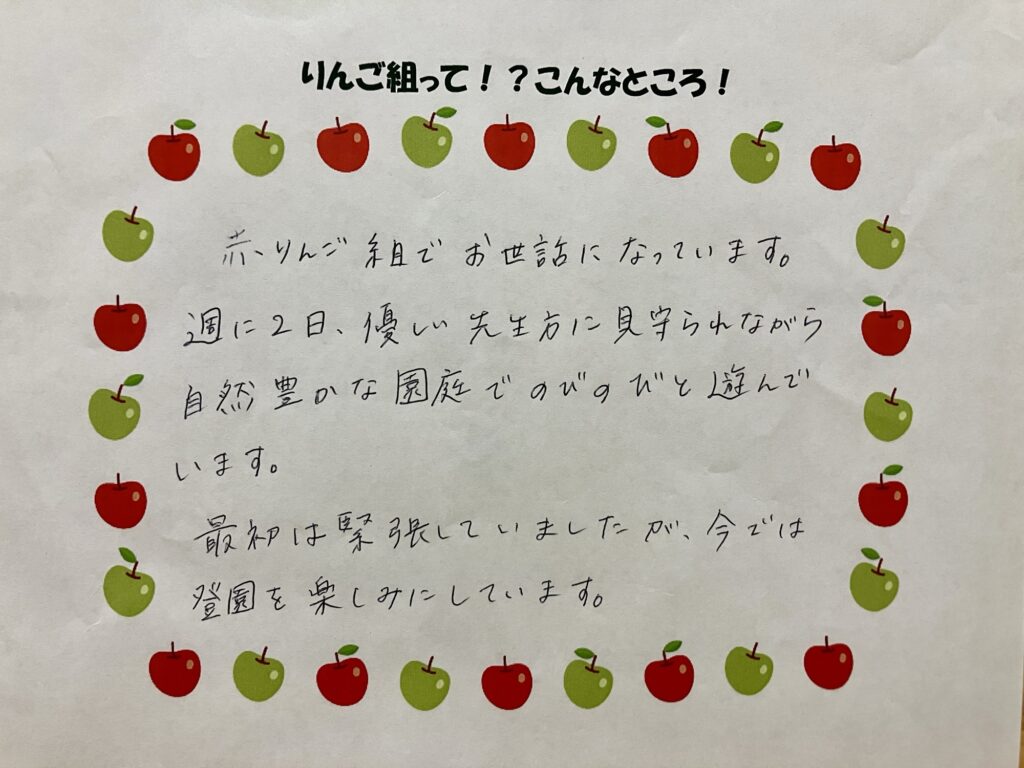 りんご組って！？こんなところ！
赤りんご組でお世話になっています。
週に2日、優しい先生方に見守られながら
自然豊かな園庭でのびのびと遊んで
います。
最初は緊張していましたが、今では
登園を楽しみにしています。